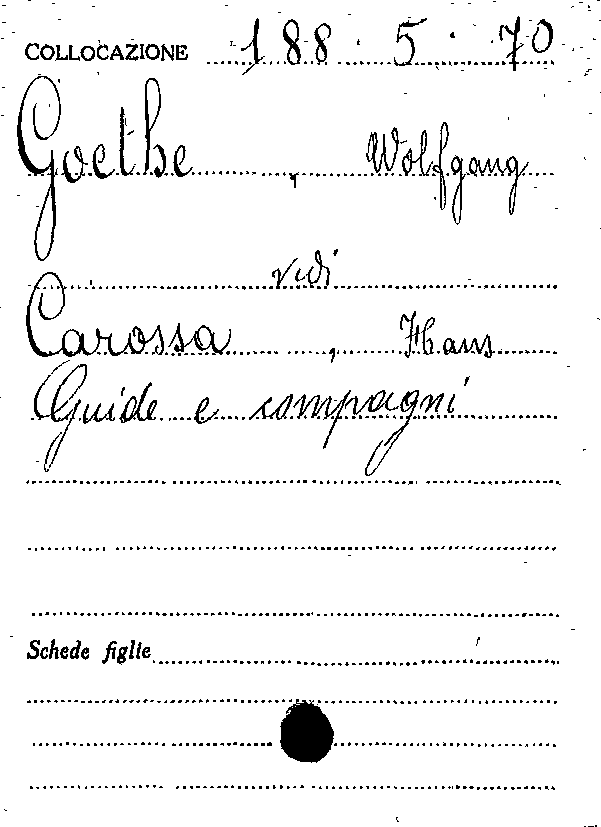 COLLOCAZIONE 188.5.70
Goethe, Wolfgang
vedi
Carossa, Hans
Guide e compagni
Schede figlie